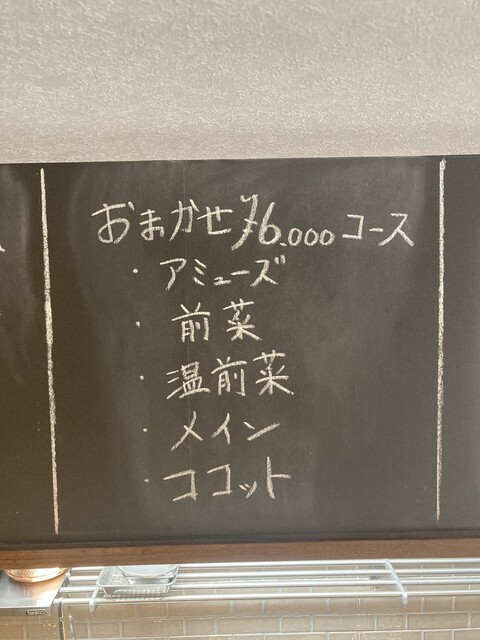 おまかせ¥6.000コース
・アミューズ
・前菜
・温前菜
・メイン
・ココット